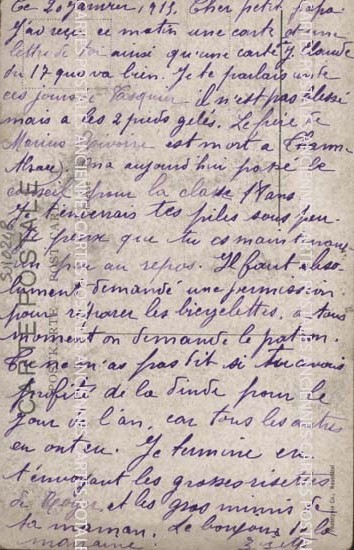 Ce 20 Janvier 1915. Cher petit papa
J'ai reçu ce matin une carte et une
lettre de toi ainsi qu'une carte J. Claude
du 17 quo va bien. Je te parlais
ces jours il n'est pas blessé
mais a les 2 pieds gelés. Le père de
Marius est mort à
Alsace. On a aujourd'hui passé le
conseil pour la classe 18 ans.
Je t'enverrais tes piles sous peu.
Je peux que tu es maintenant
un peu au repos. Il faut abso-
lument demandé une permission
pour réparer les bicyclettes, à tous
moment on demande le patron.
Tu ne m'as pas dit si tu avais
profité de la dinde pour le
jour de l'an, car tous les autres
en ont eu. Je termine en
t'envoyant les grosses risettes
de et les gros mimis de
ta maman. Le bonjour de
marraine
CARTE POSTALE
POSTKARTE POST CARD
ANCIENNES CARTES POSTALES